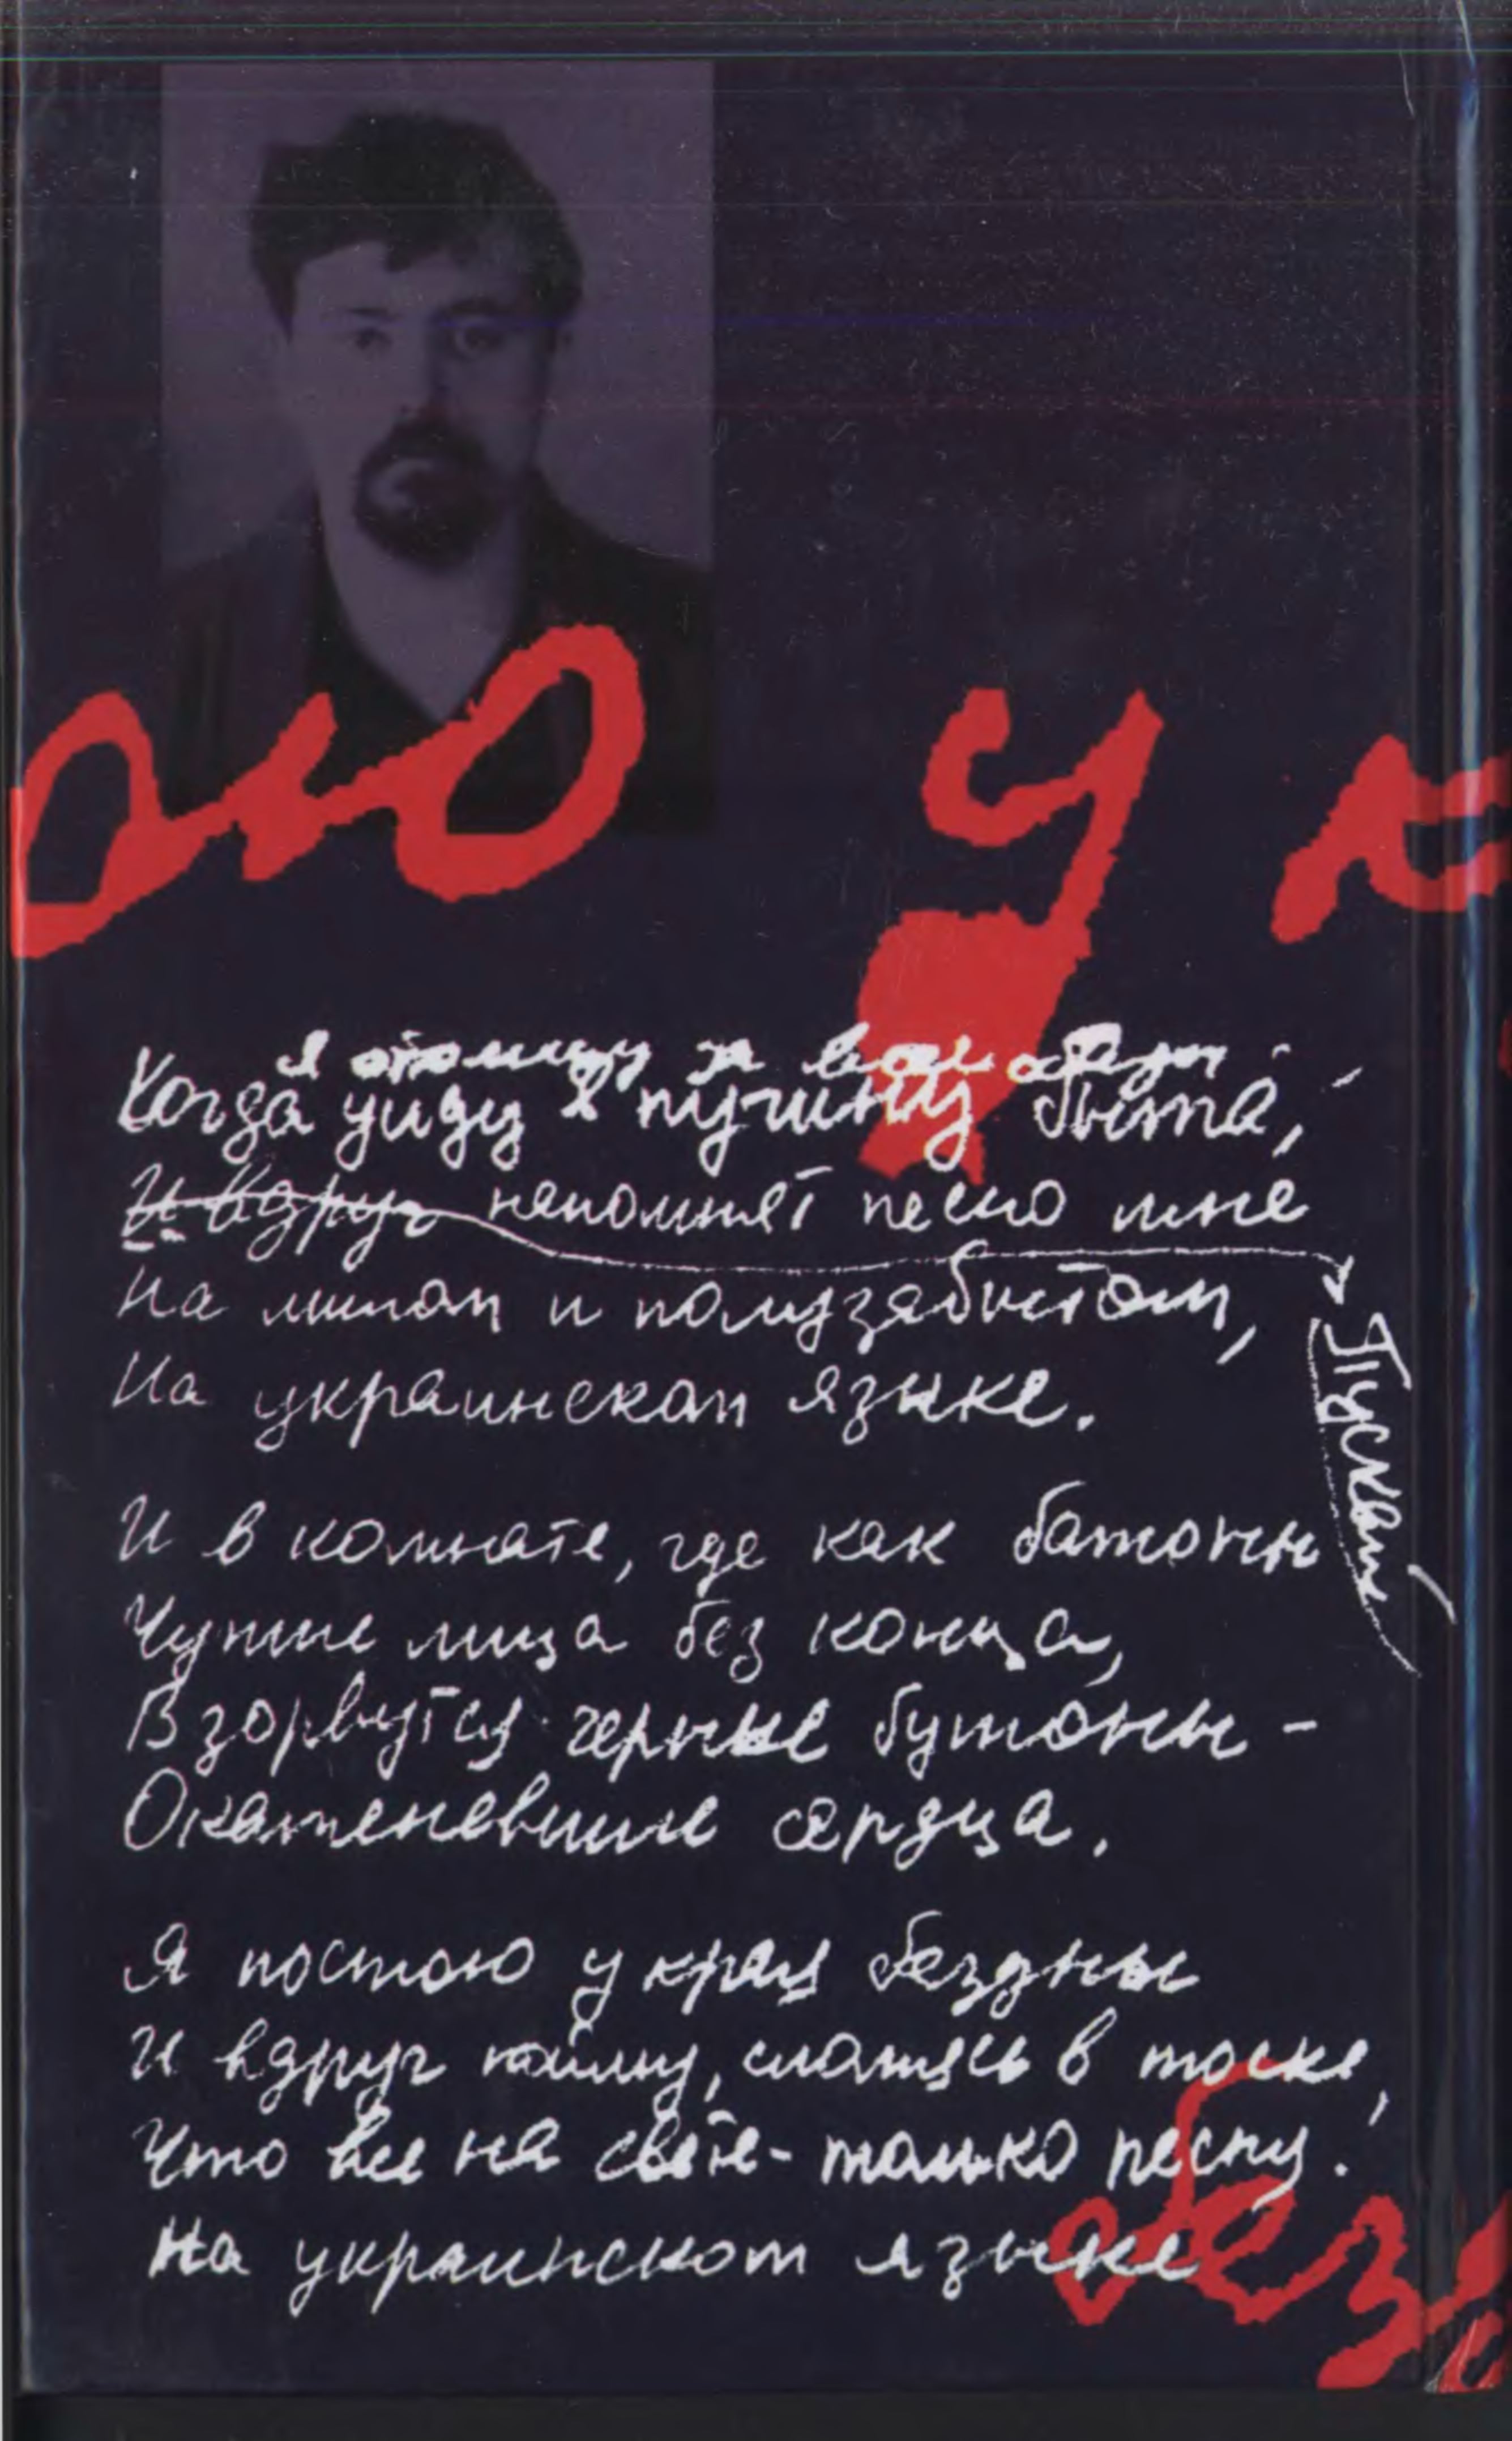 ою у к
я отомщу за все обеды
Когда уйду в пучину быта,
И вдруг напомнят песню мне
На милом и полузабытом,
На украинском языке.
Пускай
И в комнате, где как батоны
Чужие лица без конца,
Взорвутся черные бутоны -
Окаменевшие сердца.
Я постою у края бездны
И вдруг пойму, сломясь в тоске,
Что все на свете - только песня
На украинском языке
без